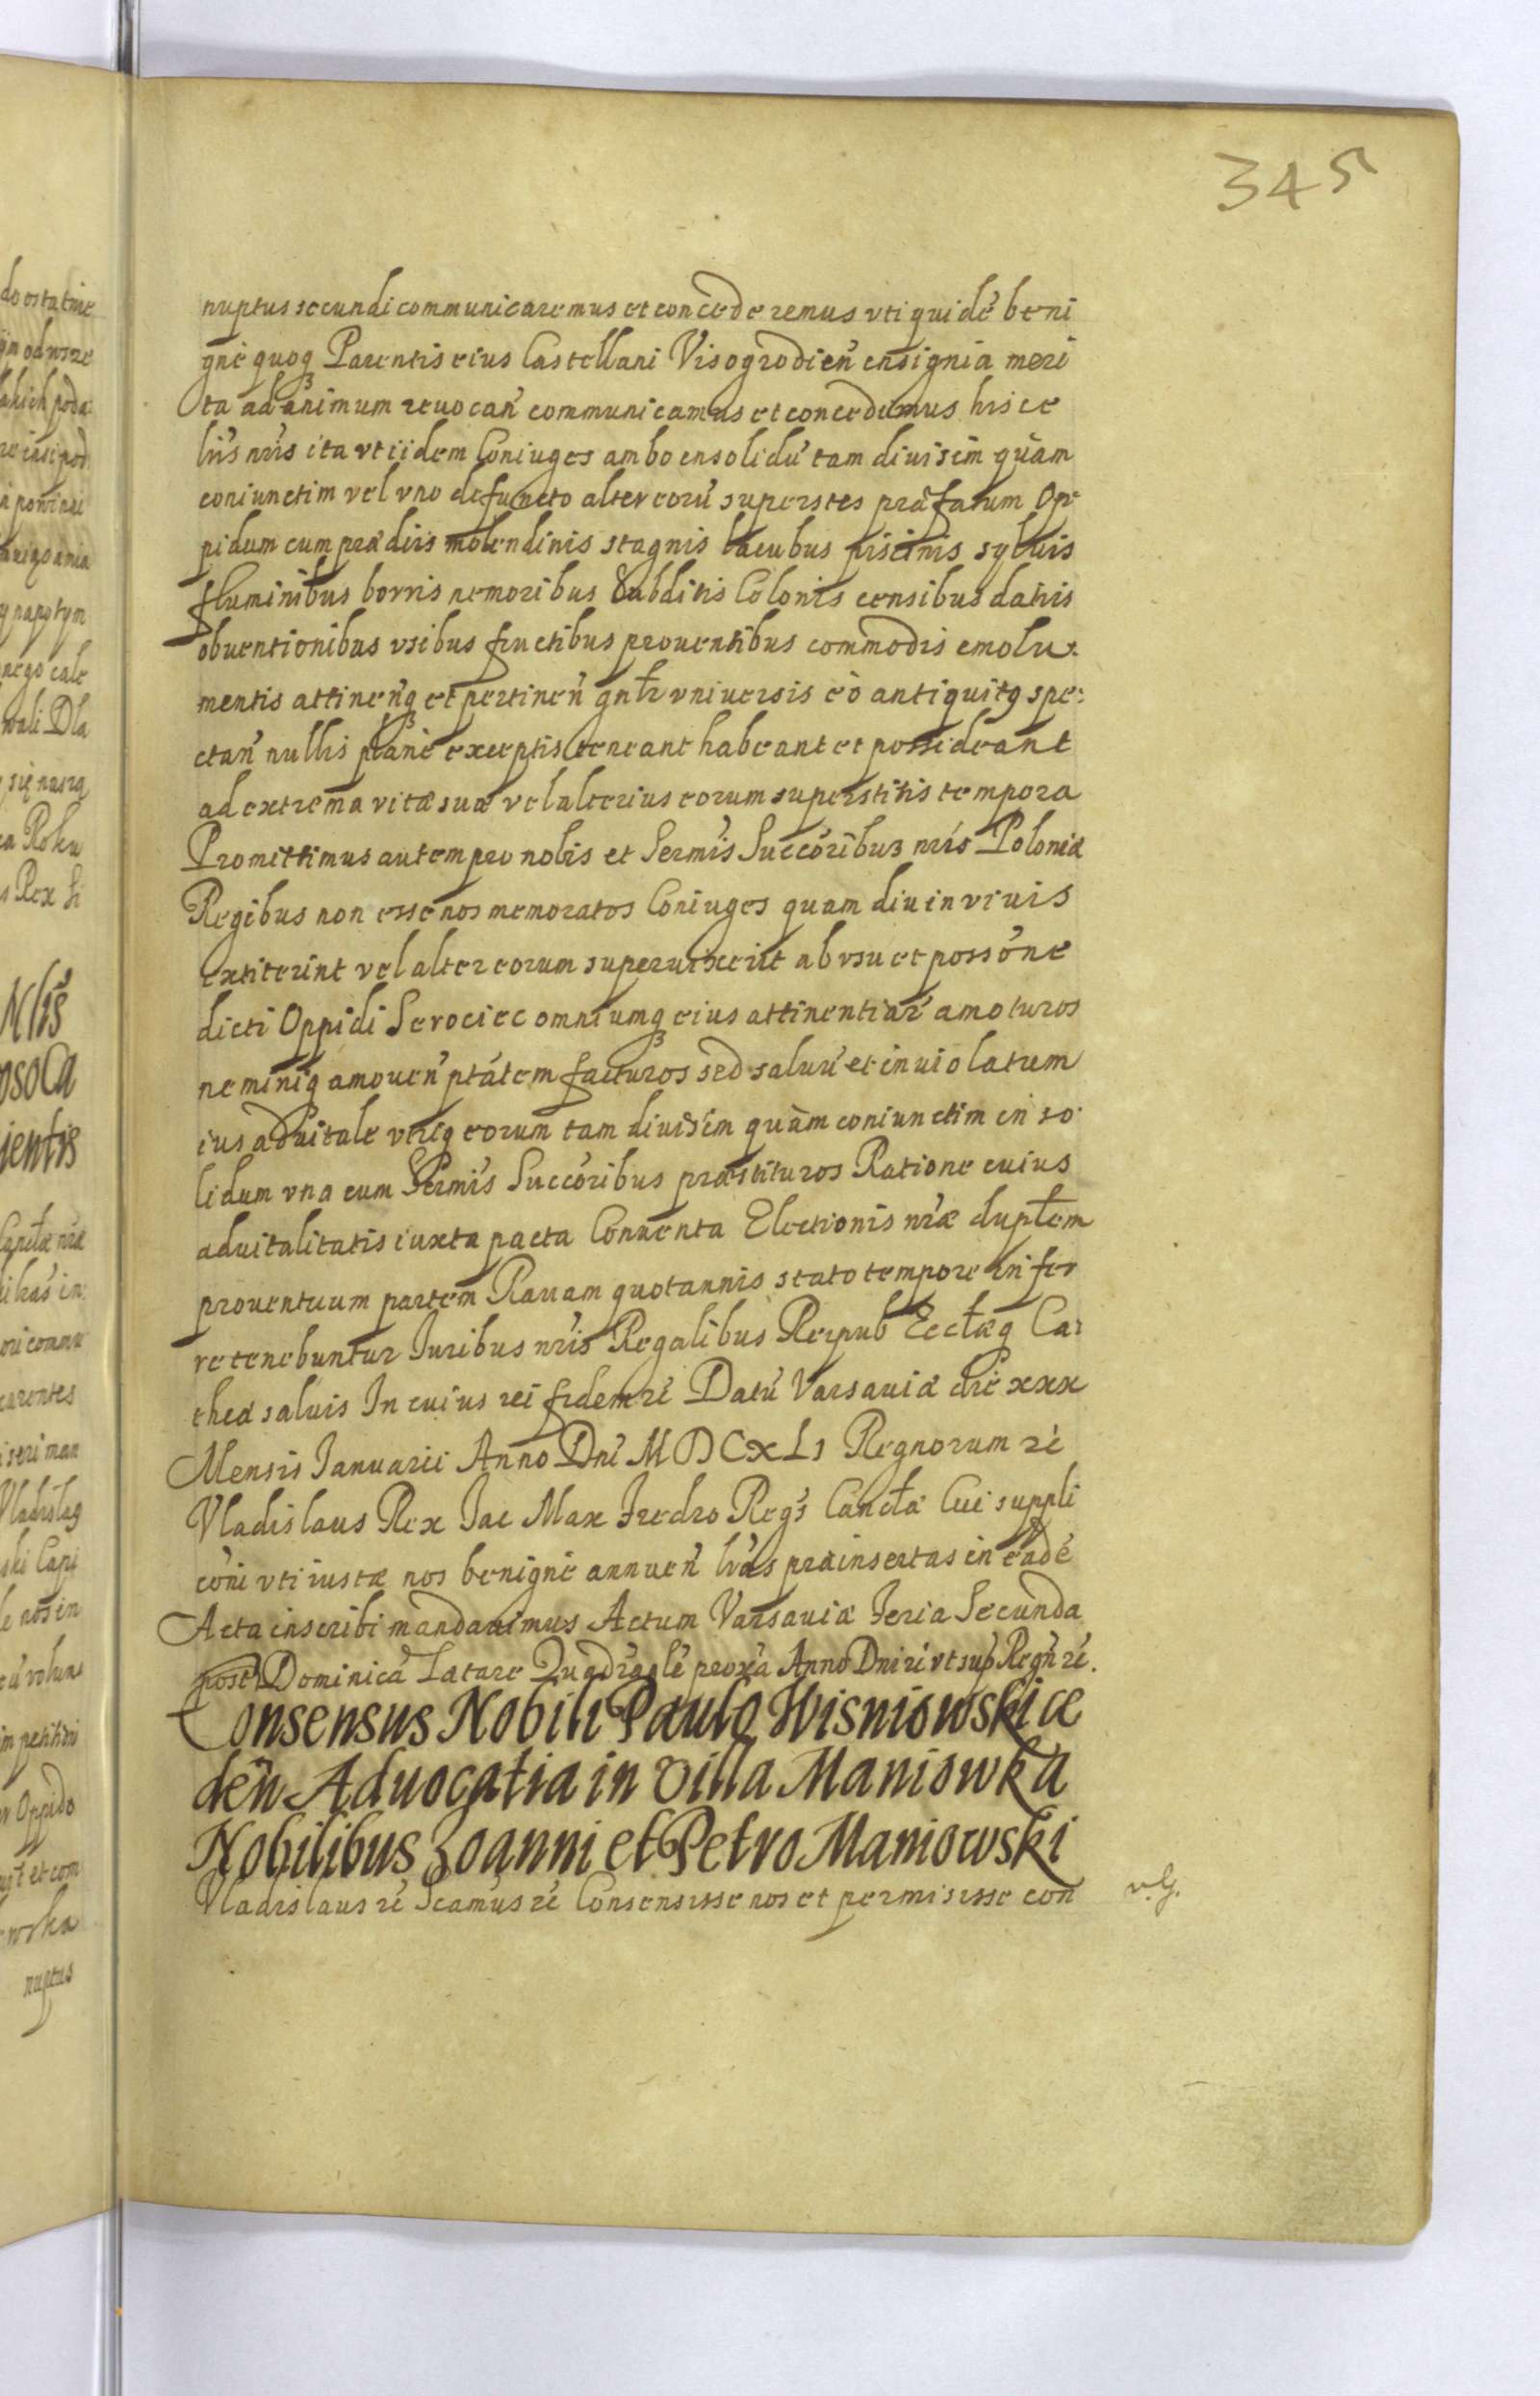 345
nuptus secundi communicaremus et concederemus vti quidē beni
gnè quoq Parentis eius Castellani Visogrodień ensignia meri
ta ad animum reuocań communicamus et concedimus hisce
lŕis nŕis ita vt iidem Coniuges ambo insolidū tam diuisim quàm
coniunctim vel vno defuncto alter eorū superstes præfatum Op
pidum cum prædiis molendinis stagnis lacubus piscinis syluis
fluminibus borris nemoribus Subditis Colonis censibus datiis
obuentionibus vsibus fructibus prouentibus commodis emolu:
mentis attineńq et pertineń gnłr vniuersis eò antiquitq spe:
ctań nullis planè exceptis teneant habeant et possideant
ad extrema vitæ suæ vel alterius eorum superstitis tempora
Promittimus autem pro nobis et Sermís Succóribus nrís Poloniæ
Regibus non esse nos memoratos Coniuges quam diu in viuis
extiterint vel alter eorum superuixerit ab vsu et possóne
dicti Oppidi Serociec omniumq eius attinentiar̄ amoturos
neminiq amouen̄ ptátem facturos sed saluū et inuiolatum
ius aduitale vtriq eorum tam diuisim quàm coniunctim in so
lidum vna cum Sermís Succóribus præstituros Ratione cuius
aduitalitatis iuxta pacta Conuenta Electionis nŕæ dupłem
prouentuum partem Rauam quotannis stato tempore infer
re tenebuntur Iuribus nŕis Regalibus Reipub Ecctæq Ca:
theæ saluis In cuius rei fidem rē Datū Varsauiæ die xxx
Mensis Ianuarii Anno Dnī MDCXLI Regnorum rē
Vladislaus Rex Iac Max Fredro Regs Cancłæ Cui suppli
cóni vti iustæ nos benignè annuen̄ lŕas præinsertas in eadē
Acta inscribi mandauimus Actum Varsauiæ Feria Secunda
post Dominicā Lætare Quadragłe proxā Anno Dni rē vt sup Regń rē.
Consensus Nobili Paulo Wisniowski ce
deń Aduocatia in Villa Maniowka
Nobilibus Joanni et Petro Maniowski
Vladislaus rē Scamús rē Consensisse nos et permisisse con
v.G.